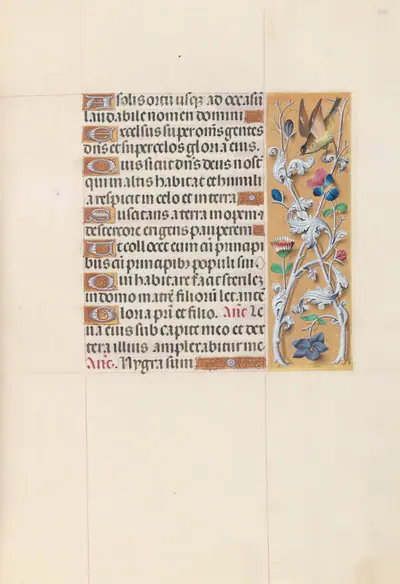 A solis ortu usq; ad occasū
laudabile nomen domini
Excelsus super om̄s gentes
dn̄s et super celos glória eius.
Quis sicut dn̄s deus nost̄
qui in altis habitat et humili
a respicit in celo et in terra
Suscitans a terra inopem
de stercore erigens pauperem
Ut collocet eum cū principi
bus cū principib; populi sui
Qui habitare facit sterilē
in domo matrē filiorū letantē
Gloria pr̄i et filio. Añe. Le
va eius sub capite meo et dex
tera illius amplexabitur me
Añe. Nygra sum